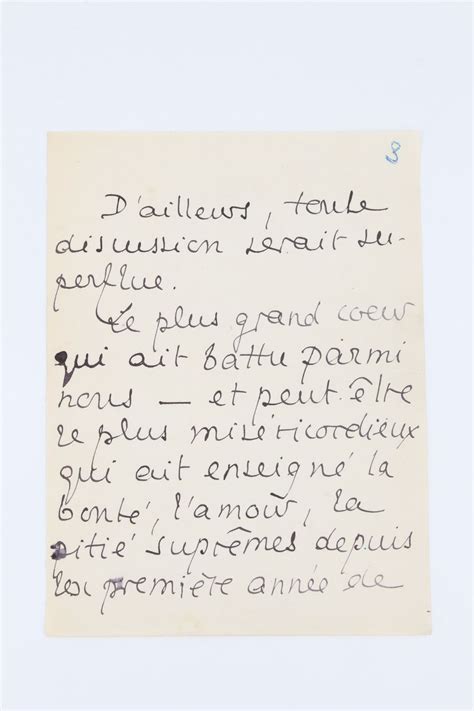 8
D'ailleurs, toute
discussion serait su-
perflue.
Le plus grand coeur
qui ait battu parmi
nous — et peut-être
le plus miséricordieux
qui ait enseigné la
bonté, l'amour, la
pitié suprêmes depuis
la première année de